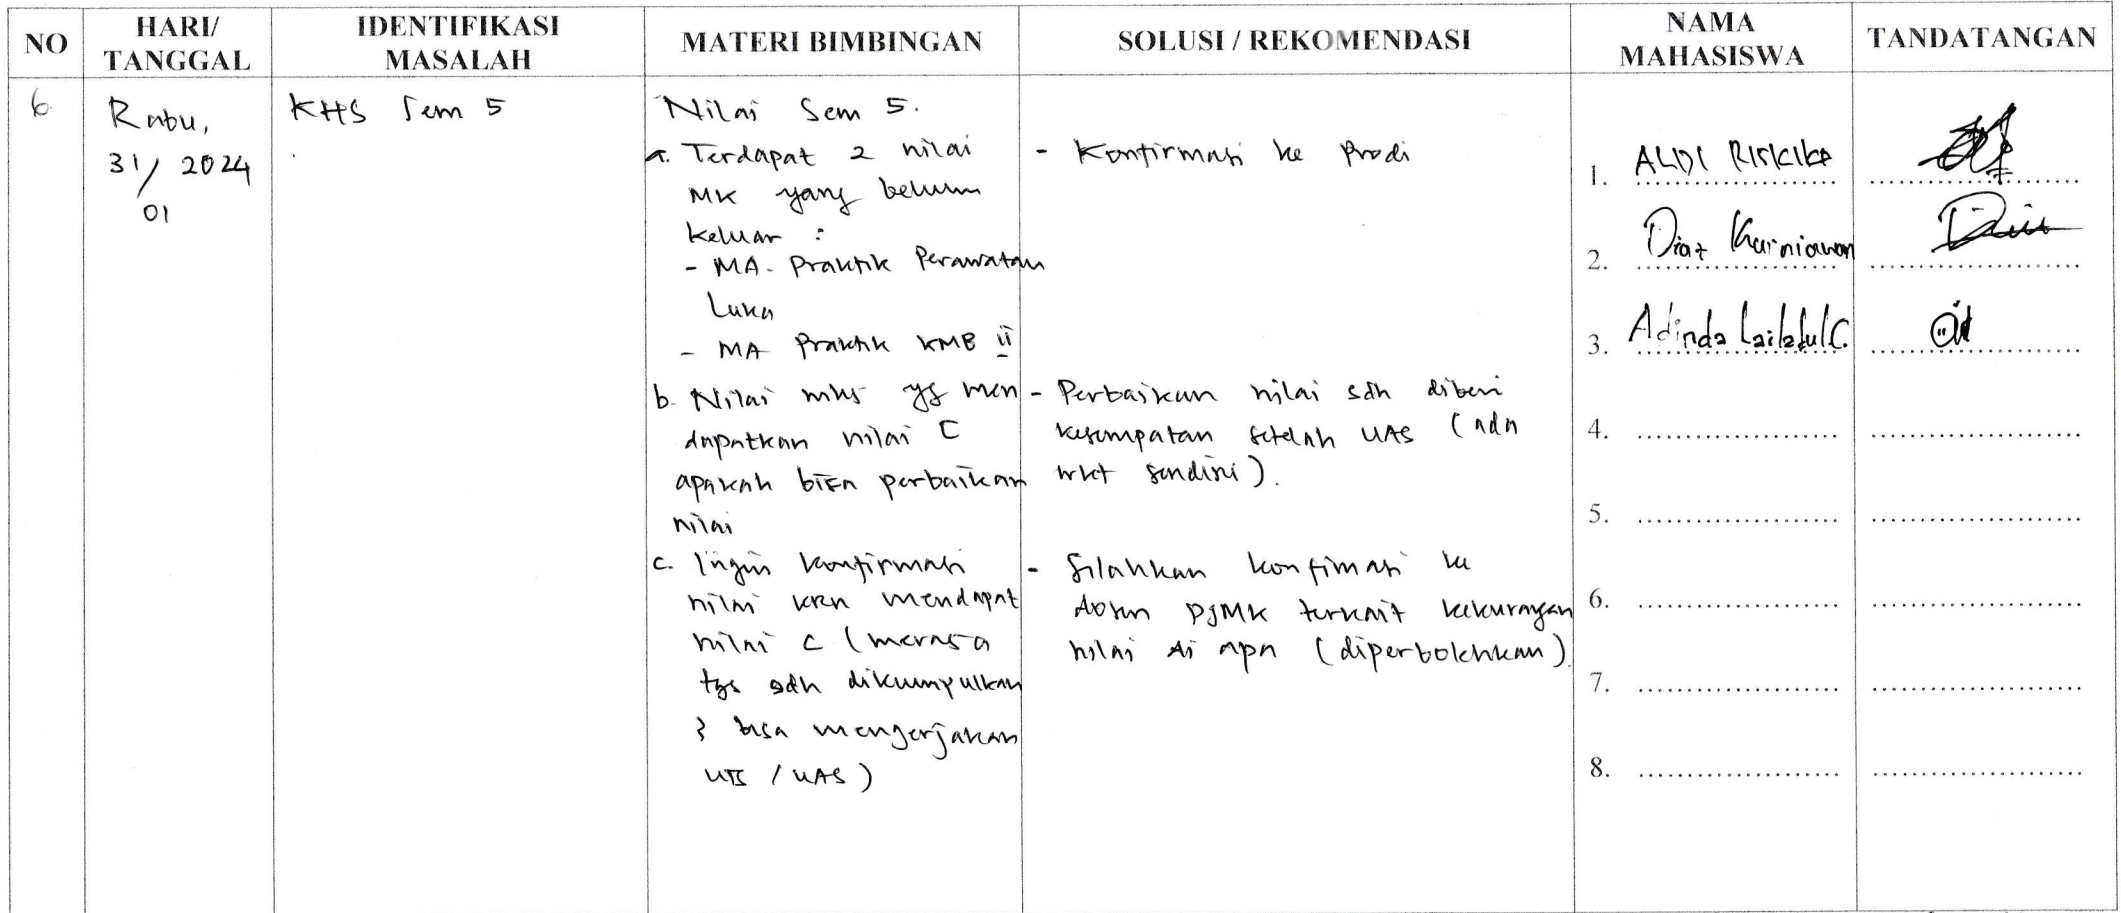 NO
HARI/
TANGGAL
IDENTIFIKASI
MASALAH
MATERI BIMBINGAN
SOLUSI / REKOMENDASI
NAMA
MAHASISWA
TANDATANGAN
6
Rabu,
31/ 2024
01
KHS Sem 5
Nilai Sem 5.
a. Terdapat 2 nilai
MK yang belum
keluar :
- MA. Praktik Perawatan
Luka
- MA Praktik KMB II
b. Nilai mhs yg men
dapatkan nilai C
apakah bisa perbaikan
nilai
c. Ingin konfirmasi
nilai krn mendapat
nilai C (merasa
tgs sdh dikumpulkan
& bisa mengerjakan
UTS / UAS)
- Konfirmasi ke Prodi
- Perbaikan nilai sdh diberi
kesempatan setelah UAS (ada
wkt sendiri).
- Silahkan konfimasi ke
dosen PJMK terkait kekurangan
nilai di apa (diperbolehkan).
1. ALDI
2. Diaz Kurniawan
3. Adinda Lailatul C.
4.
5.
6.
7.
8.